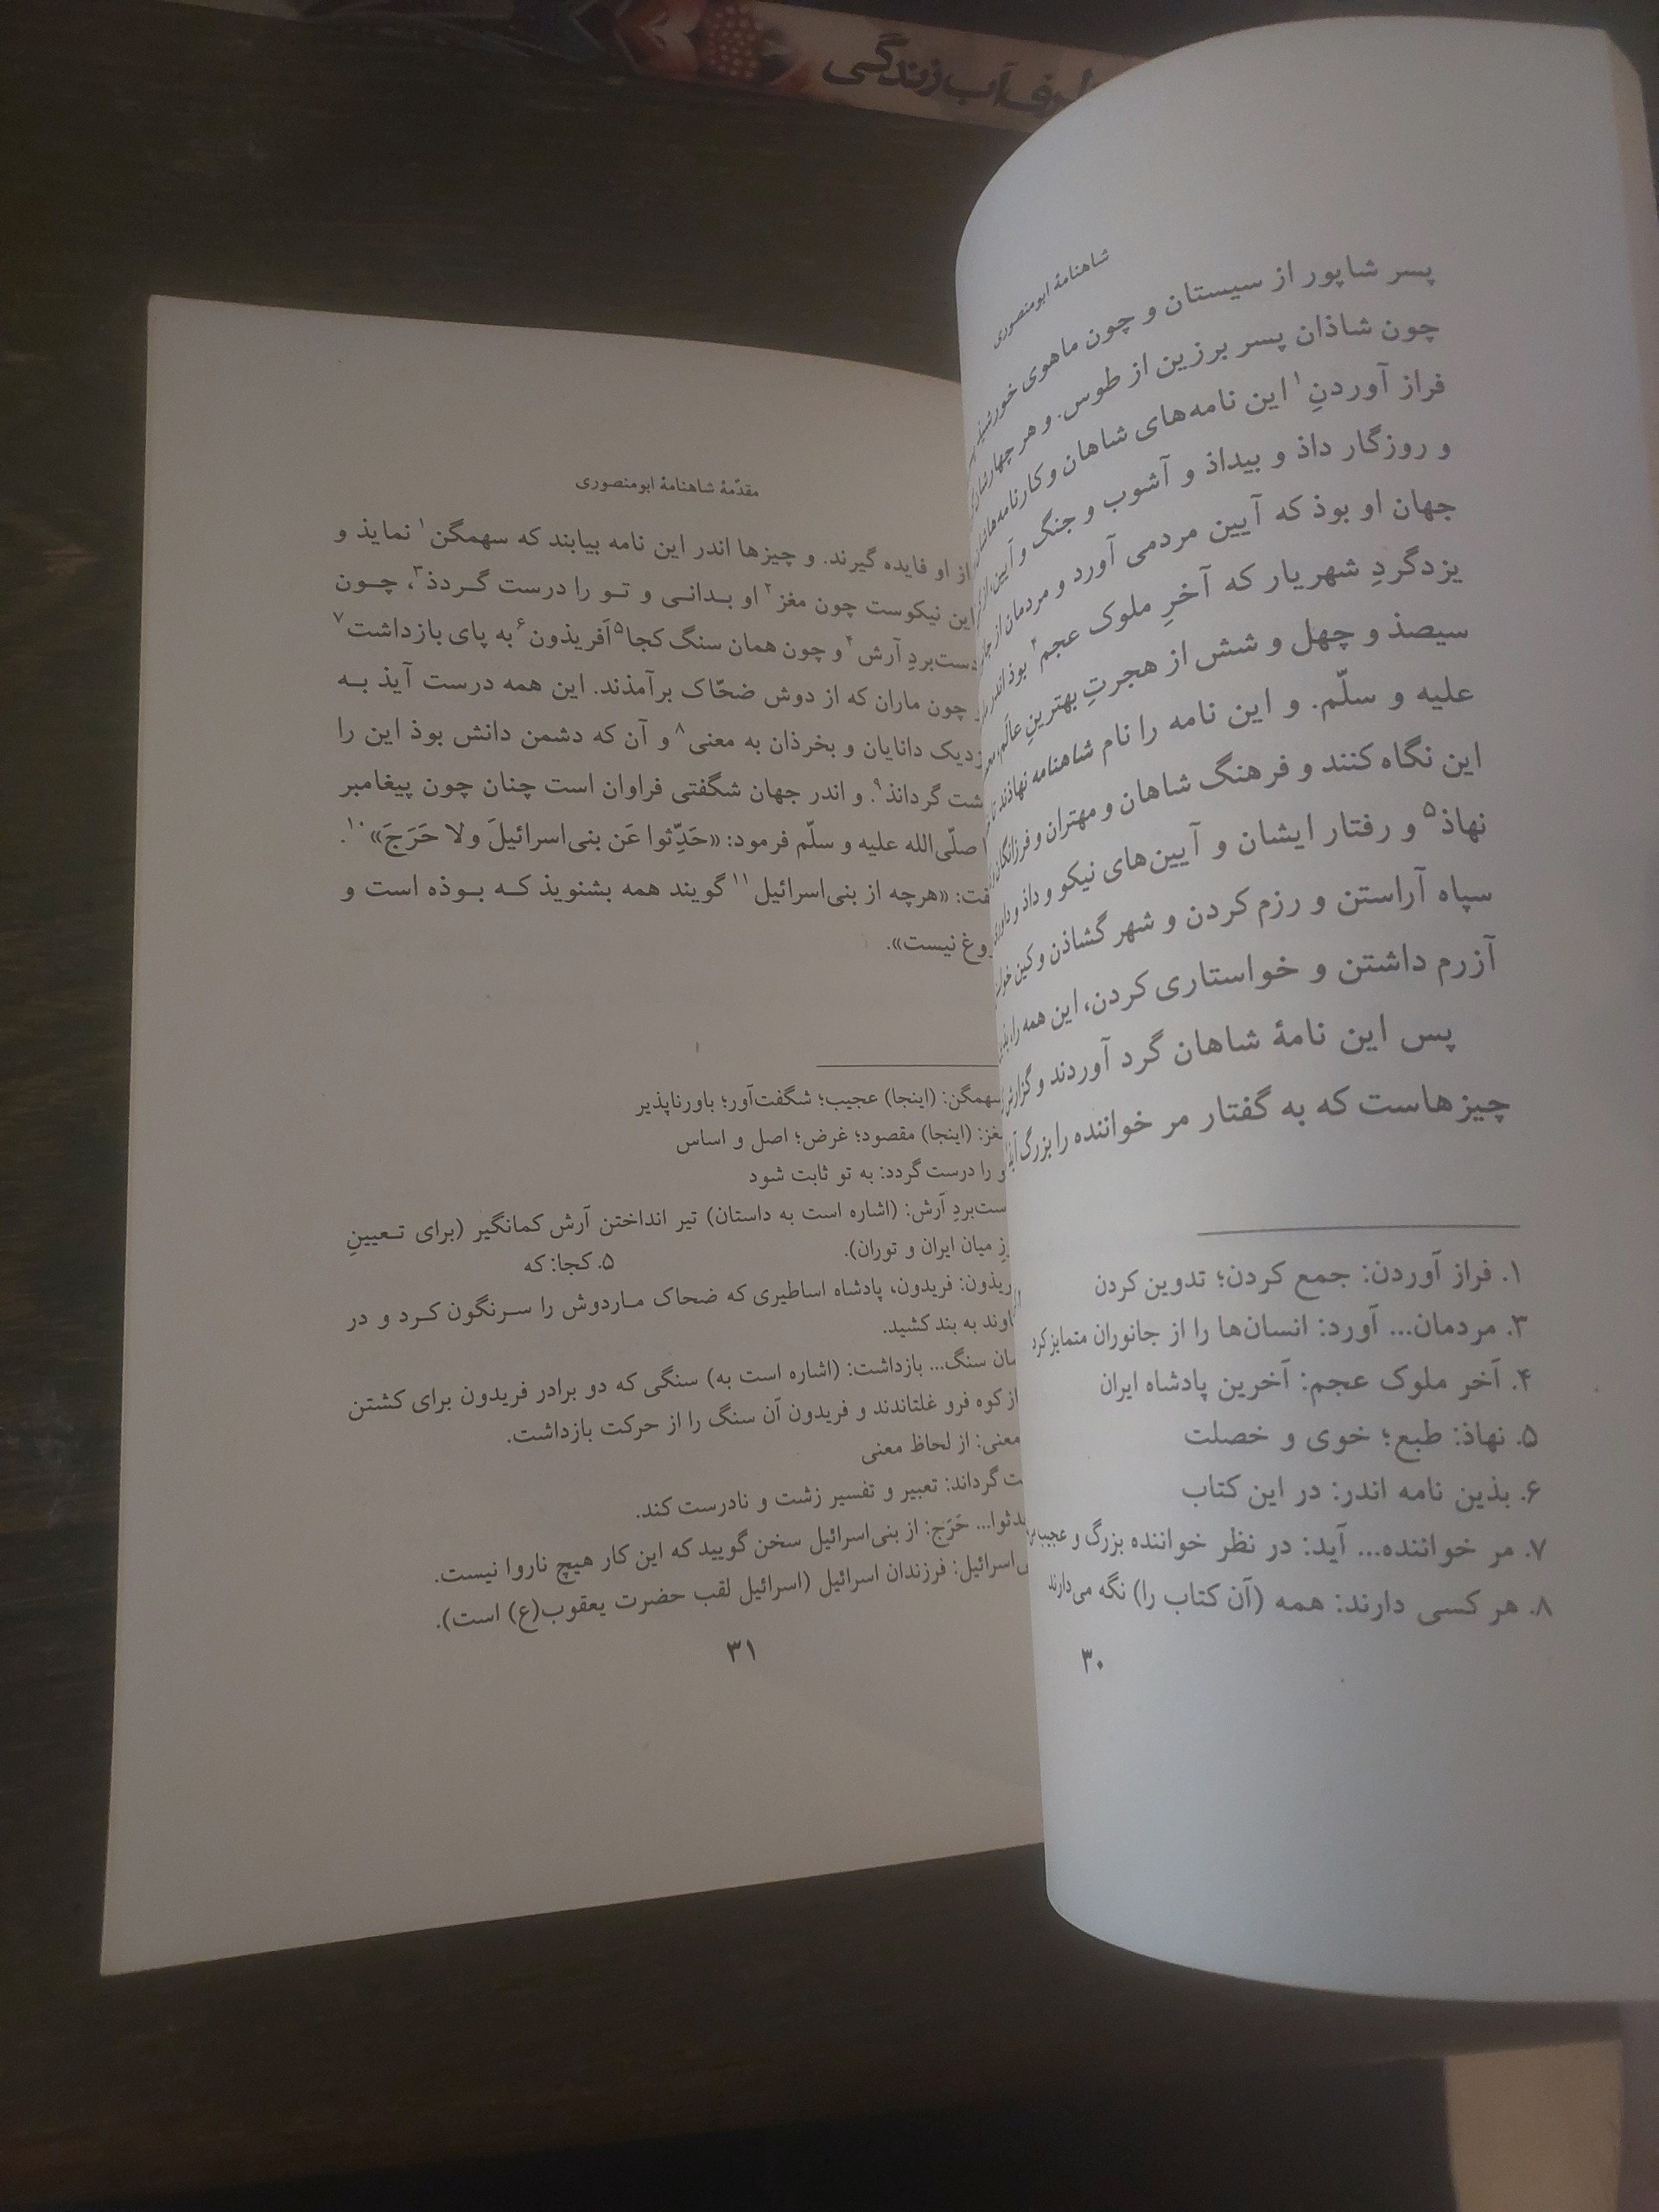 آب زندگی
شاهنامهٔ ابومنصوری
پسر شاپور از سیستان و چون ماهوی خورشید
چون شاذان پسر برزین از طوس. و هر چهارشان
فراز آوردنِ۱ این نامه‌های شاهان و کارنامه‌هاشان
و روزگار داذ و بیداذ و آشوب و جنگ و آیین، از
جهان او بوذ که آیین مردمی آورد و مردمان از
یزدگردِ شهریار که آخرِ ملوک عجم۴ بوذ اندر
سیصذ و چهل و شش از هجرتِ بهترینِ عالَم،
علیه و سلّم. و این نامه را نام شاهنامه نهاذند تا
این نگاه کنند و فرهنگ شاهان و مهتران و فرزانگان
نهاذ۵ و رفتار ایشان و آیین‌های نیکو و داذ و داوری
سپاه آراستن و رزم کردن و شهر گشاذن و کین
آزرم داشتن و خواستاری کردن، این همه را
پس این نامهٔ شاهان گرد آوردند و گزارش
چیزهاست که به گفتار مر خواننده را بزرگ آیذ
۱. فراز آوردن: جمع کردن؛ تدوین کردن
۳. مردمان... آورد: انسان‌ها را از جانوران متمایز کرد
۴. آخر ملوک عجم: آخرین پادشاه ایران
۵. نهاذ: طبع؛ خوی و خصلت
۶. بذین نامه اندر: در این کتاب
۷. مر خواننده... آید: در نظر خواننده بزرگ و عجیب
۸. هر کسی دارند: همه (آن کتاب را) نگه می‌دارند
۳۰
مقدّمهٔ شاهنامهٔ ابومنصوری
از او فایده گیرند. و چیزها اندر این نامه بیابند که سهمگن۱ نمایذ و
این نیکوست چون مغز۲ او بدانی و تو را درست گردذ۳، چون
دست‌بردِ آرش۴ و چون همان سنگ کجا۵ آفریذون۶ به پای بازداشت۷
چون ماران که از دوش ضحّاک برآمذند. این همه درست آیذ به
دیک دانایان و بخرذان به معنی۸ و آن که دشمن دانش بوذ این را
شت گرداند۹. و اندر جهان شگفتی فراوان است چنان چون پیغامبر
صلّی‌الله علیه و سلّم فرمود: «حَدِّثوا عَن بنی‌اسرائیلَ ولا حَرَجَ»۱۰.
فت: «هرچه از بنی‌اسرائیل۱۱ گویند همه بشنویذ که بوذه است و
روغ نیست».
سهمگن: (اینجا) عجیب؛ شگفت‌آور؛ باورناپذیر
غز: (اینجا) مقصود؛ غرض؛ اصل و اساس
و را درست گردد: به تو ثابت شود
ست‌بردِ آرش: (اشاره است به داستان) تیر انداختن آرش کمانگیر (برای تعیینِ
رزِ میان ایران و توران). ۵. کجا: که
ریذون: فریدون، پادشاه اساطیری که ضحاک ماردوش را سرنگون کرد و در
اوند به بند کشید.
مان سنگ... بازداشت: (اشاره است به) سنگی که دو برادر فریدون برای کشتن
از کوه فرو غلتاندند و فریدون آن سنگ را از حرکت بازداشت.
معنی: از لحاظ معنی
ت گرداند: تعبیر و تفسیر زشت و نادرست کند.
دثوا... حَرَج: از بنی‌اسرائیل سخن گویید که این کار هیچ ناروا نیست.
ی‌اسرائیل: فرزندان اسرائیل (اسرائیل لقب حضرت یعقوب(ع) است).
۳۱